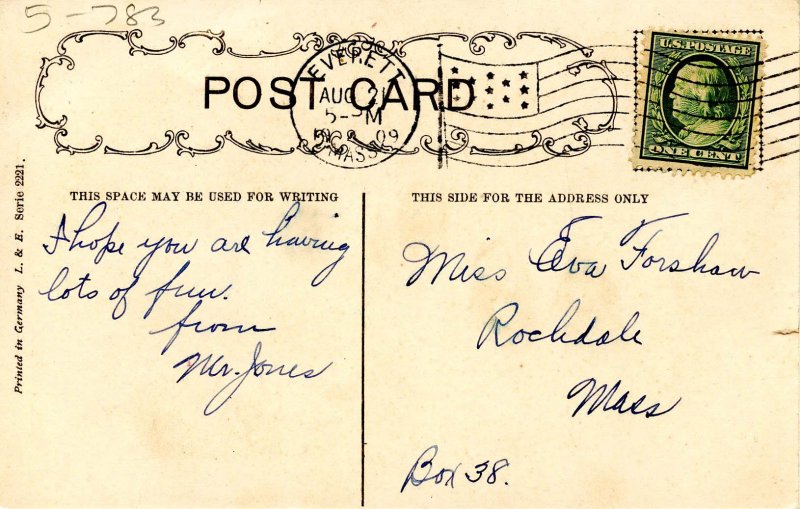 5-783
POST CARD
EVERETT
AUG 21
5-PM
09
MASS
U.S. POSTAGE
ONE CENT
THIS SPACE MAY BE USED FOR WRITING
I hope you are having
lots of fun.
from
Mr. Jones
THIS SIDE FOR THE ADDRESS ONLY
Miss Eva Forshaw
Rochdale
Mass
Box 38.
Printed in Germany L. & E. Serie 2221.